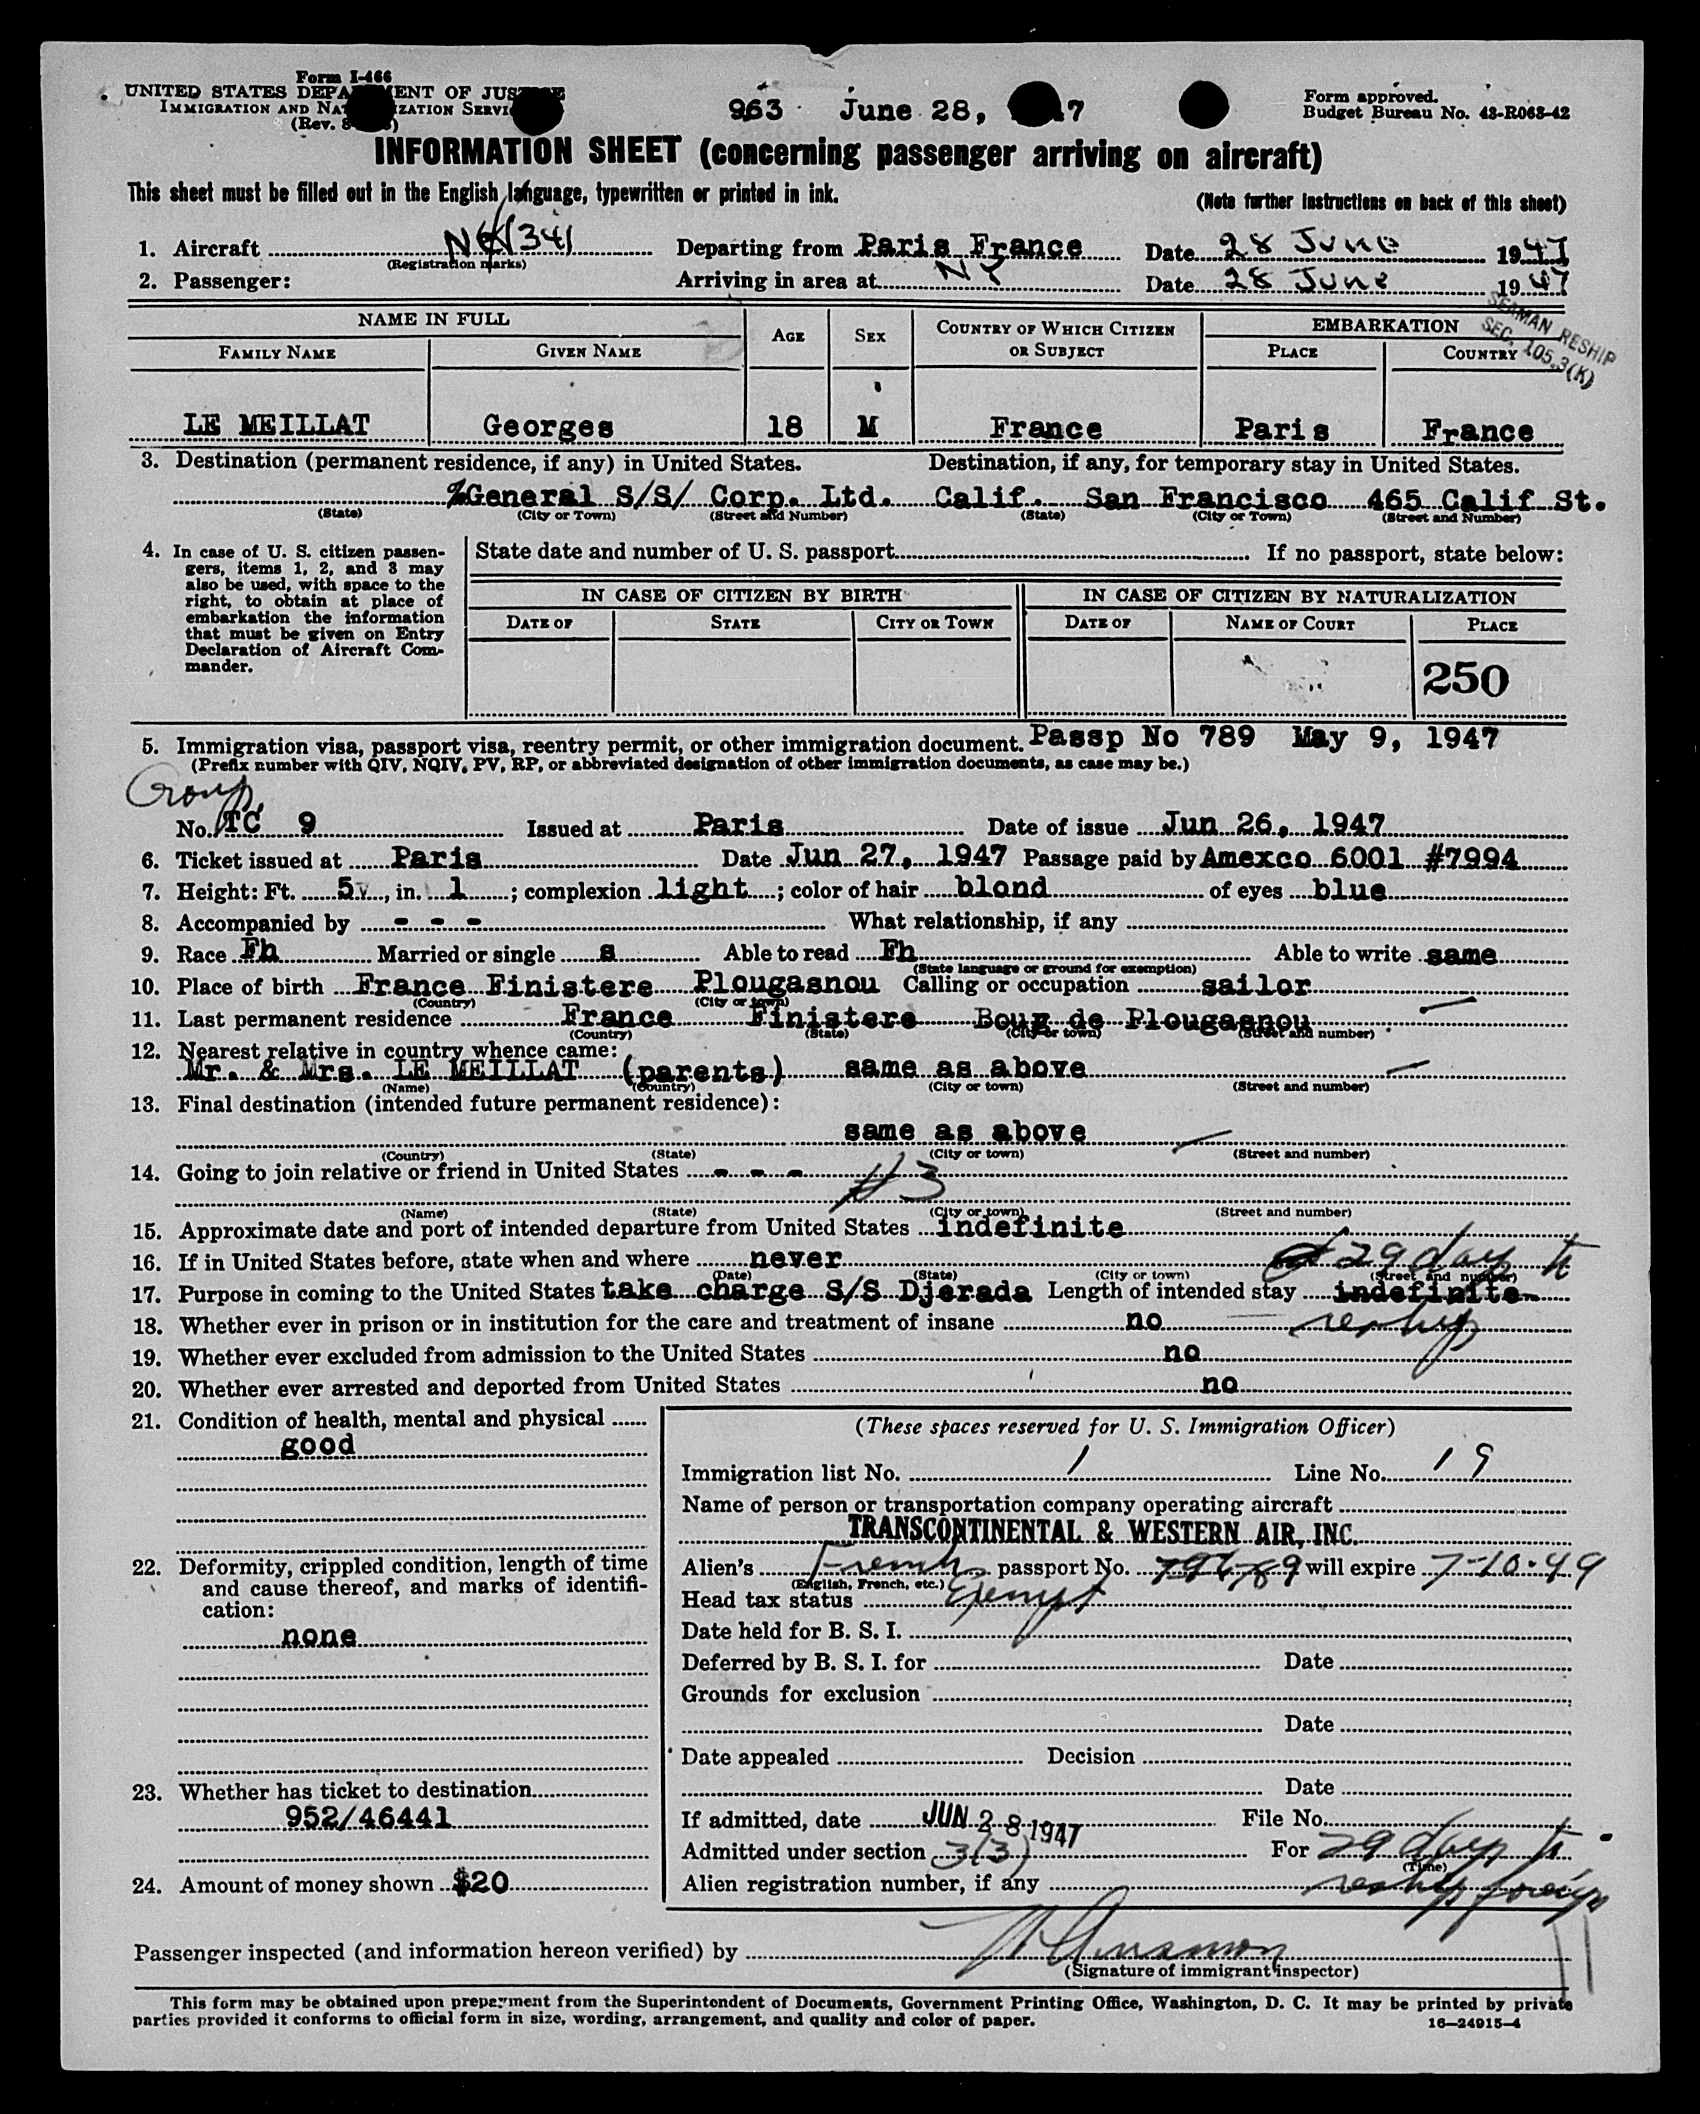 Form I-466
UNITED STATES DEPARTMENT OF JUSTICE
IMMIGRATION AND NATURALIZATION SERVICE
(Rev. 8
963 June 28, 1947
Form approved.
Budget Bureau No. 43-R063-42
INFORMATION SHEET (concerning passenger arriving on aircraft)
This sheet must be filled out in the English language, typewritten or printed in ink.
(Note further instructions on back of this sheet)
1. Aircraft 341 Departing from Paris France Date 28 June 1947
(Registration marks)
2. Passenger: Arriving in area at NY Date 28 June 1947
SEAMAN RESHIP
SEC. 105.3(K)
NAME IN FULL AGE SEX COUNTRY OF WHICH CITIZEN OR SUBJECT EMBARKATION
FAMILY NAME GIVEN NAME PLACE COUNTRY
LE MEILLAT Georges 18 M France Paris France
3. Destination (permanent residence, if any) in United States. Destination, if any, for temporary stay in United States.
%General S/S/ Corp. Ltd. Calif. San Francisco 465 Calif St.
(State) (City or Town) (Street and Number) (State) (City or Town) (Street and Number)
4. In case of U. S. citizen passen-
gers, items 1, 2, and 3 may
also be used, with space to the
right, to obtain at place of
embarkation the information
that must be given on Entry
Declaration of Aircraft Com-
mander.
State date and number of U. S. passport If no passport, state below:
IN CASE OF CITIZEN BY BIRTH IN CASE OF CITIZEN BY NATURALIZATION
DATE OF STATE CITY OR TOWN DATE OF NAME OF COURT PLACE
250
5. Immigration visa, passport visa, reentry permit, or other immigration document. Passp No 789 May 9, 1947
(Prefix number with QIV, NQIV, PV, RP, or abbreviated designation of other immigration documents, as case may be.)
Group
No. TC 9 Issued at Paris Date of issue Jun 26, 1947
6. Ticket issued at Paris Date Jun 27, 1947 Passage paid by Amexco 6001 #7994
7. Height: Ft. 5, in. 1; complexion light; color of hair blond of eyes blue
8. Accompanied by - - - What relationship, if any
9. Race Fh Married or single s Able to read Fh Able to write same
(State language or ground for exemption)
10. Place of birth France Finistere Plougasnou Calling or occupation sailor
(Country) (City or town)
11. Last permanent residence France Finistere Boug de Plougasnou
(Country) (State) (City or town) (Street and number)
12. Nearest relative in country whence came:
Mr. & Mrs. LE MEILLAT (parents) same as above
(Name) (Country) (City or town) (Street and number)
13. Final destination (intended future permanent residence):
same as above
(Country) (State) (City or town) (Street and number)
14. Going to join relative or friend in United States - - -
#3
(Name) (State) (City or town) (Street and number)
15. Approximate date and port of intended departure from United States indefinite
16. If in United States before, state when and where never 29 days to
(Date) (State) (City or town) (Street and number)
17. Purpose in coming to the United States take charge S/S Djerada Length of intended stay indefinite
reship
18. Whether ever in prison or in institution for the care and treatment of insane no
19. Whether ever excluded from admission to the United States no
20. Whether ever arrested and deported from United States no
21. Condition of health, mental and physical
good
22. Deformity, crippled condition, length of time
and cause thereof, and marks of identifi-
cation:
none
23. Whether has ticket to destination
952/46441
24. Amount of money shown $20
(These spaces reserved for U. S. Immigration Officer)
Immigration list No. 1 Line No. 19
Name of person or transportation company operating aircraft
TRANSCONTINENTAL & WESTERN AIR, INC.
Alien's French passport No. will expire 7-10-49
(English, French, etc.)
Head tax status Exempt
Date held for B. S. I.
Deferred by B. S. I. for Date
Grounds for exclusion
Date
Date appealed Decision
Date
If admitted, date JUN 28 1947 File No.
Admitted under section 3(3) For 29 days to
(Time)
Alien registration number, if any reship foreign
Passenger inspected (and information hereon verified) by
(Signature of immigrant inspector)
This form may be obtained upon prepayment from the Superintendent of Documents, Government Printing Office, Washington, D. C. It may be printed by private
parties provided it conforms to official form in size, wording, arrangement, and quality and color of paper.
16—24915-4